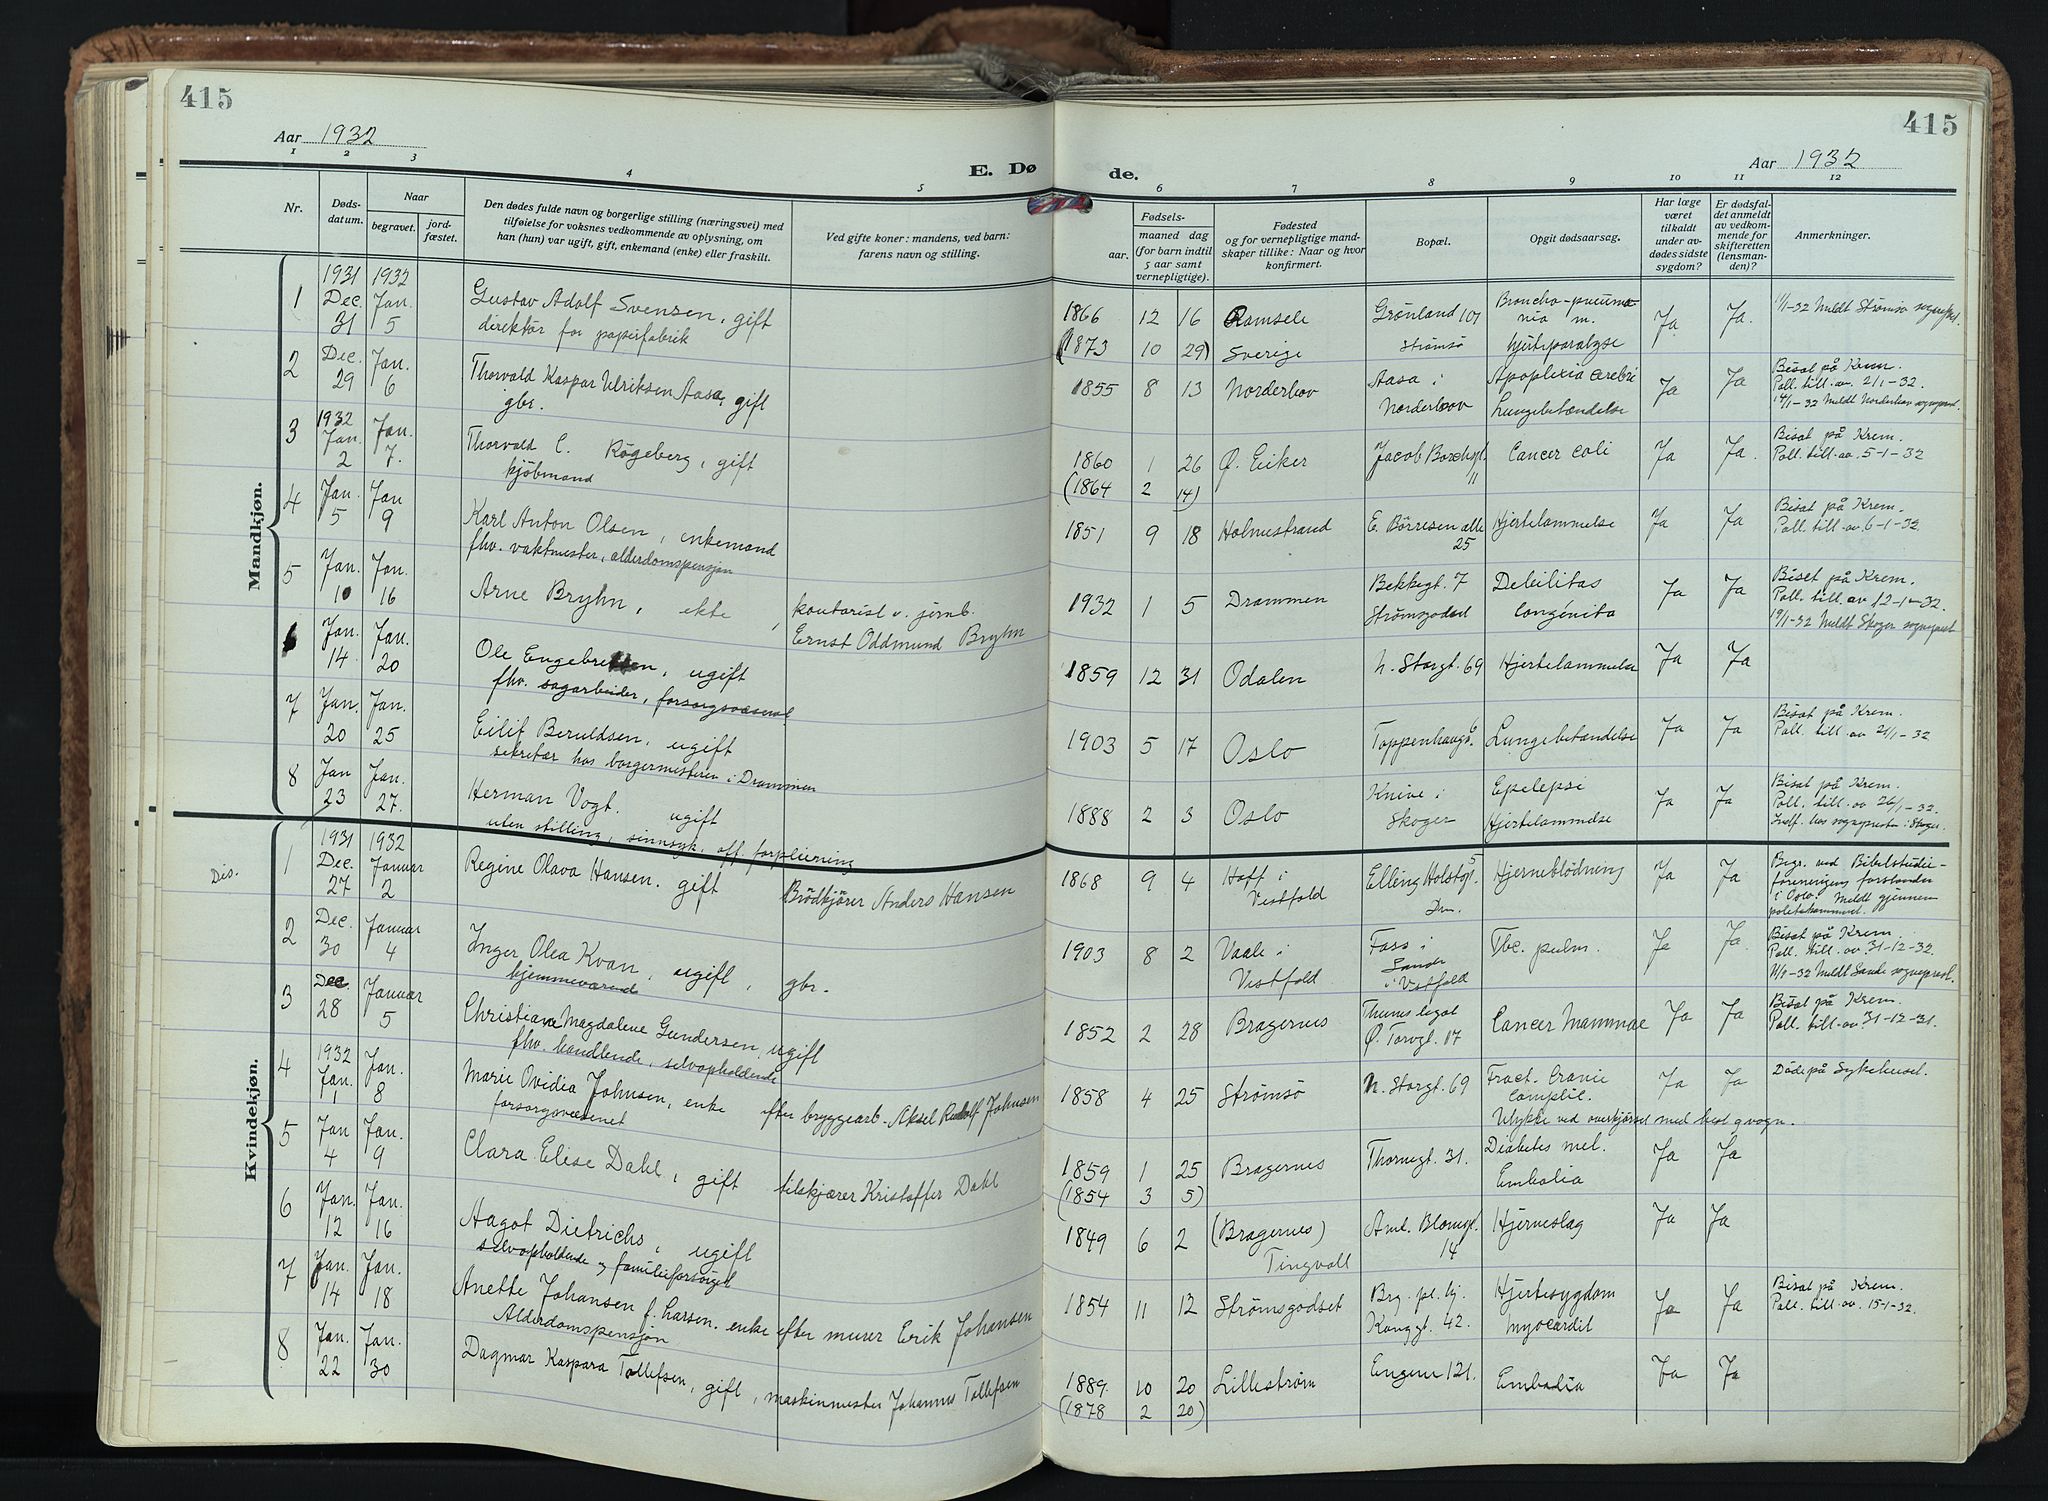 415
415
Aar 1932
Aar 1932
E. Dø de.
1 2 3 4 5 6 7 8 9 10 11 12
Nr.
Døds-
datum.
Naar
begravet.
jord-
fæstet.
Den dødes fulde navn og borgerlige stilling (næringsvei) med
tilføielse for voksnes vedkommende av oplysning, om
han (hun) var ugift, gift, enkemand (enke) eller fraskilt.
Ved gifte koner: mandens, ved barn:
farens navn og stilling.
Fødsels-
aar.
maaned dag
(for barn indtil
5 aar samt
vernepligtige).
Fødested
og for vernepligtige mand-
skaper tillike: Naar og hvor
konfirmert.
Bopæl.
Opgit dødsaarsag.
Har læge
været
tilkaldt
under av-
dødes sidste
sygdom?
Er dødsfal-
det anmeldt
av vedkom-
mende for
skifteretten
(lensman-
den)?
Anmerkninger.
Mandkjøn.
1 1931 Dec. 31 1932 Jan. 5
Gustav Adolf Svensen, gift
direktør for papirfabrik
1866 12 16
(1873 10 29)
Ramsele
Sverige
Grønland 107
Strømsø
Broncho-pneumo-
nia m.
hjerteparalyse
Ja Ja.
11/1-32 Meldt Strømsø sogneprest.
2 Dec. 29 Jan. 6
Thorvald Kaspar Ulriksen Aasa, gift
gbr.
1855 8 13
Norderhov
Aasa i
Norderhov
Apoplexia cerebri
Lungebetændelse
Ja Ja
Bisat på Krem.
Poll. till. av. 2/1-32.
14/1-32 Meldt Norderhov sogneprest.
3 1932 Jan. 2 Jan. 7.
Thorvald C. Røgeberg, gift
kjøbmand
1860 1 26
(1864 2 14)
Ø. Eiker
Jacob Borchsgt.
11
Cancer coli
Ja Ja.
Bisat på Krem.
Poll. till. av. 5-1-32
4 Jan. 5 Jan 9
Karl Anton Olsen, enkemand
fhv. vaktmester, alderdomspensjon
1851 9 18
Holmestrand
E. Børresen alle
25
Hjertelammelse
Ja Ja
Bisat på Krem.
Poll. till. av 6-1-32
5 Jan. 10 Jan. 16
Arne Bryhn, ekte,
kontorist v. jernb.
Ernst Oddmund Bryhn
1932 1 5
Drammen
Bekkegt. 7
Strømsgodset
Debilitas
congenita
Ja Ja
Biset på Krem.
Poll. till. av 12-1-32.
19/1-32 Meldt Skoger sogneprest
6 Jan. 14 Jan. 20
Ole Engebretsen, ugift
fhv. sagarbeider, forsorgsvæsenet
1859 12 31
Odalen
N. Storgt. 69
Hjertelammelse
Ja Ja
7 Jan. 20 Jan. 25
Eilif Beruldsen, ugift
sekretær hos borgermesteren i Drammen
1903 5 17
Oslo
Toppenhaugs. 6
Lungebetændelse
Ja Ja
Bisat på Krem.
Poll. till. av 21/1-32
8 Jan 23 Jan. 27.
Herman Vogt. ugift
uten stilling, sinnsyk, off. forpleining
1888 2 3
Oslo
Knive i
Skoger
Epelepsi
Hjertelammelse
Ja Ja
Bisat på Krem.
Poll. till. av 26/1-32.
Indf. hos sognepresten i Skoger.
Kvindekjøn.
Dis.
1 1931 Dec. 27 1932 Januar 2
Regine Olava Hansen. gift
Brödkjører Anders Hansen
1868 9 4
Hoff i
Vestfold
Elling Holstgt. 5
Drm.
Hjerneblödning
Ja Ja
Begr. ved Bibelstudie-
foreningens forstander
i Oslo. Meldt gjennem
politikammeret.
2 Dec. 30 Januar 4
Inger Olea Kvan, ugift, gbr.
hjemmeværende
1903 8 2
Vaale i
Vestfold
Foss i
Sande
i Vestfold
Tbc. pulm.
Ja Ja.
Bisat på Krem.
Poll. till. av. 31-12-32.
11/1-32 Meldt Sande sogneprest.
3 Dec. 28 Januar 5
Christiane Magdalene Gundersen, ugift
fhv. handlende, selvopholdende
1852 2 28
Bragernes
Thunes legat
Ø. Torvgt. 17
Cancer Mammae
Ja Ja
Bisat på Krem.
Poll. till. av. 31-12-31.
4 1932 Jan. 1 Jan. 8
Marie Ovidia Johnsen, enke efter bryggearb. Aksel Rudolf Johnsen
forsorgsvæsenet
1858 4 25
Strømsø
N. Storgt. 69
Fract. Cranie
Complic.
Ulykke ved overkjørsel med hest og vogn.
Ja Ja
Döde på Sykehuset.
5 Jan 4 Jan. 9
Clara Elise Dahl, gift
bilskjører Kristoffer Dahl
1859 1 25
(1854 3 5)
Bragernes
Thornegt. 31.
Diabetes mel.
Embolia
Ja Ja
6 Jan. 12 Jan. 16
Aagot Dietrichs, ugift
selvopholdende og familieforsørget
1849 6 2
(Bragernes)
Tingvoll
Aml. Blomgt.
14
Hjerneslag
Ja Ja
7 Jan. 14 Jan. 18
Anette Johansen f. Larsen. enke efter murer Erik Johansen
Alderdomspensjon
1854 11 12
Strømsgodset
Brg. pl. hj.
Konggt. 42.
Hjertesygdom
myocardit
Ja Ja
Bisat på Krem.
Poll. till. av. 15-1-32.
8 Jan. 22 Jan. 30
Dagmar Kaspara Tollefsen, gift, maskinmester Johannes Tollefsen
1889. 10 20
(1878 2 20)
Lillestrøm
Engene 121.
Embolia
Ja Ja